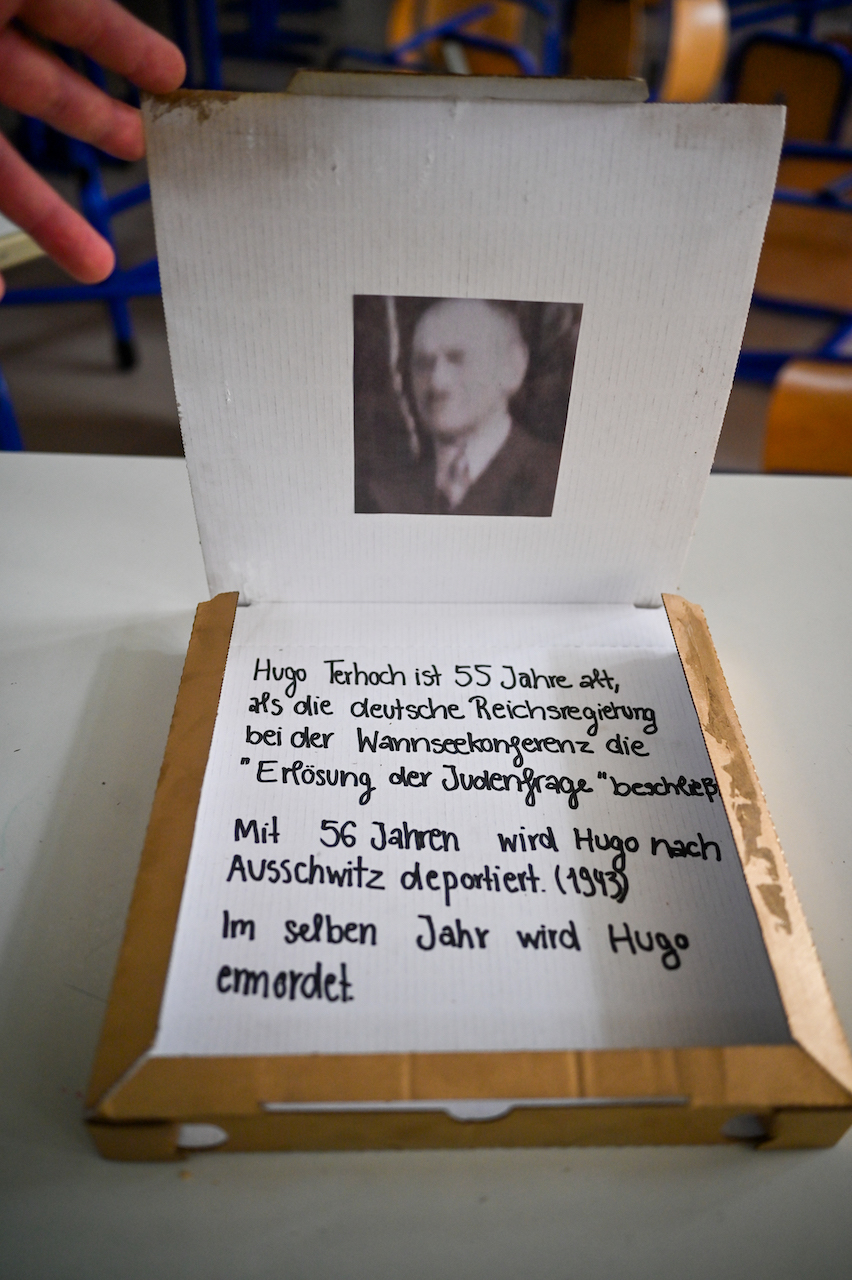 Hugo Terhoch ist 55 Jahre alt,
als die deutsche Reichsregierung
bei der Wannseekonferenz die
"Erlösung der Judenfrage" beschließ
Mit 56 Jahren wird Hugo nach
Ausschwitz deportiert. (1943)
Im selben Jahr wird Hugo
ermordet.